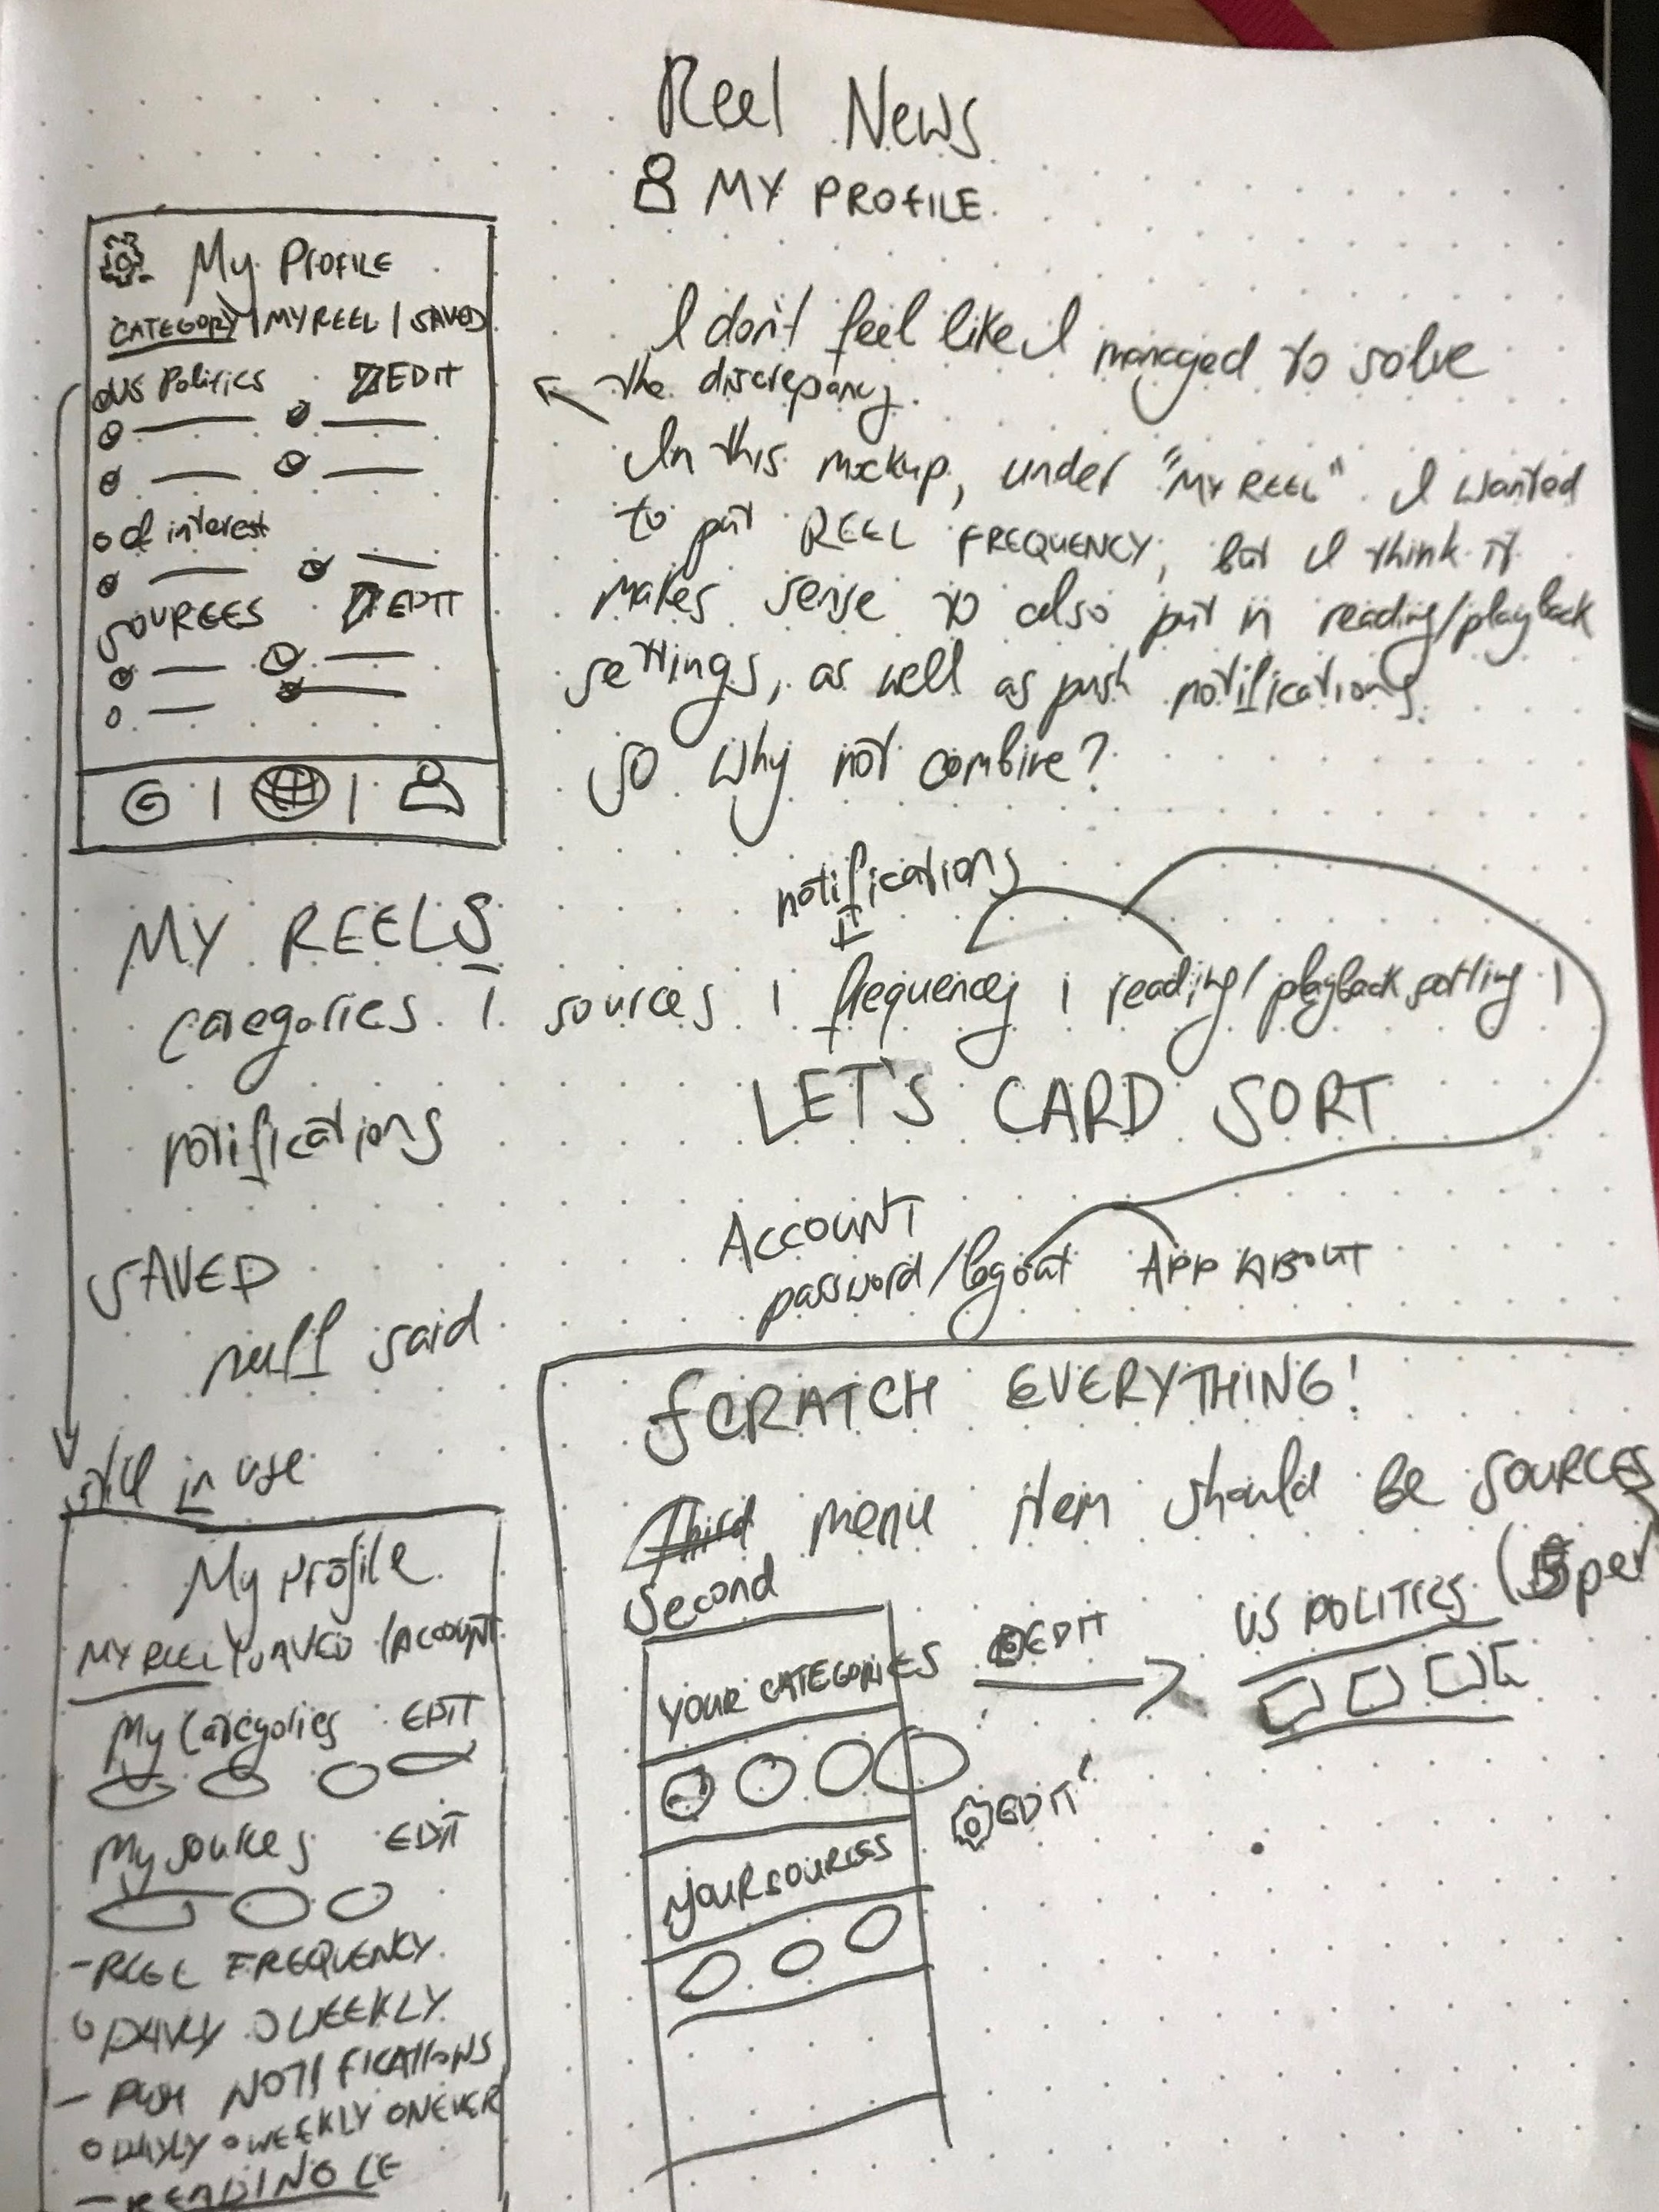 Reel News
MY PROFILE
My PROFILE
CATEGORY | MY REEL | SAVED
US Politics EDIT
of interest
SOURCES EDIT
I don't feel like I managed to solve
the discrepancy.
In this mockup, under "MY REEL" I wanted
to put REEL FREQUENCY, but I think it
makes sense to also put in reading/playback
settings, as well as push notifications
so why not combine?
MY REELS
notifications
categories | sources | frequency | reading/playback setting |
LET'S CARD SORT
notifications
ACCOUNT
password/logout APP ABOUT
SAVED
null said
still in use
My Profile
MY REEL / SAVED / ACCOUNT
My Categories EDIT
My sources EDIT
- REEL FREQUENCY
DAILY WEEKLY
- PUSH NOTIFICATIONS
DAYLY WEEKLY NEVER
SCRATCH EVERYTHING!
Third menu item should be SOURCES
Second
YOUR CATEGORIES EDIT
US POLITICS (5 per
EDIT
YOUR SOURCES